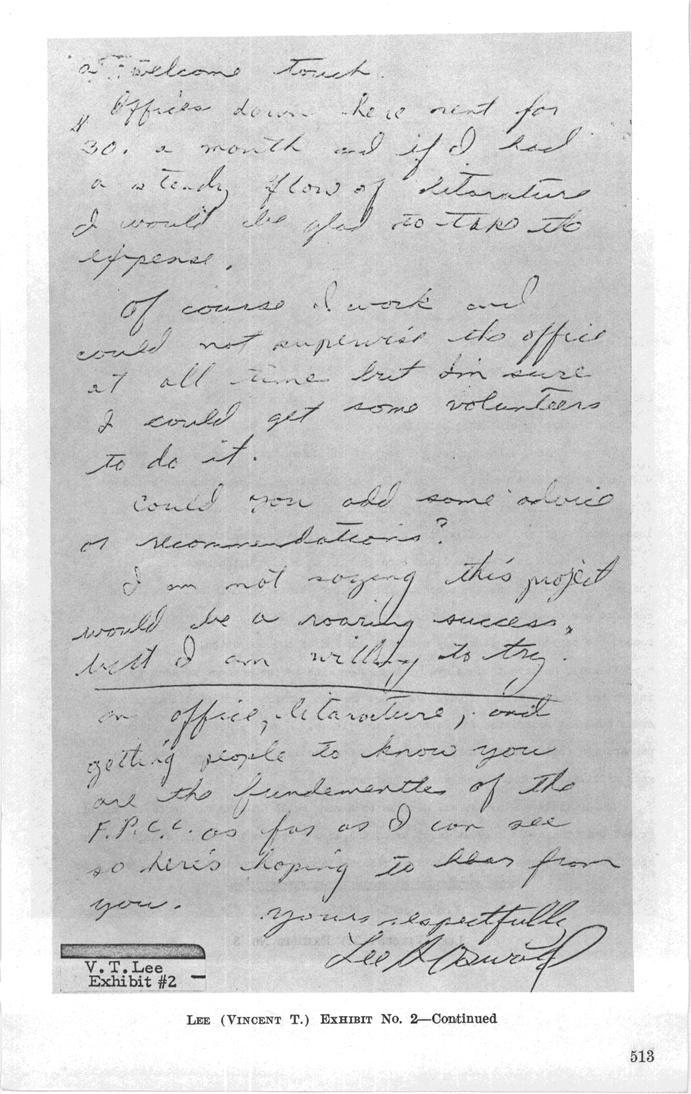 a welcome touch.
Offices down here rent for
30. a month and if I had
a steady flow of litarature
I would be glad to take the
expense.
Of course I work and
could not supervise the office
at all time but I'm sure
I could get some volunteers
to do it.
Could you add some advice
or recommendations?
I am not saying this project
would be a roaring success,
but I am willing to try.
an office, litarature, and
getting people to know you
are the fundementles of the
F.P.C.C. as far as I can see
so here's hoping to hear from
you.
yours respectfully
Lee H. Oswald
V.T.Lee
Exhibit #2
LEE (VINCENT T.) EXHIBIT No. 2—Continued
513